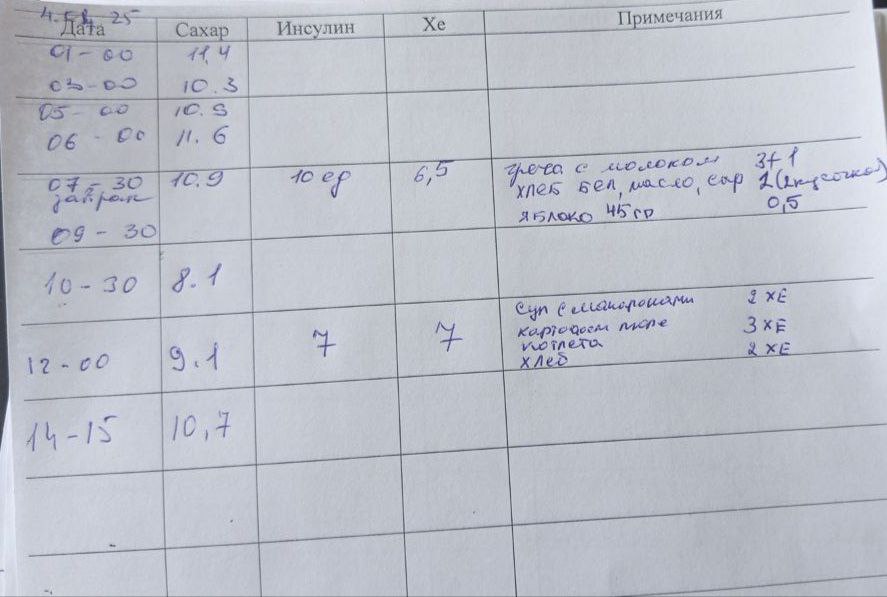 25
Дата Сахар Инсулин Хе Примечания
01-00 11,4
03-00 10.3
05-00 10.5
06-00 11.6
07-30 10.9 10 ед 6,5 греча с молоком 3+1
завтрак хлеб бел, масло, сыр 2 (2кусочка)
яблоко 45гр 0,5
09-30
10-30 8.1
суп с макаронами 2 ХЕ
12-00 9.1 7 7 картофельн пюре 3 ХЕ
котлета
хлеб 2 ХЕ
14-15 10,7